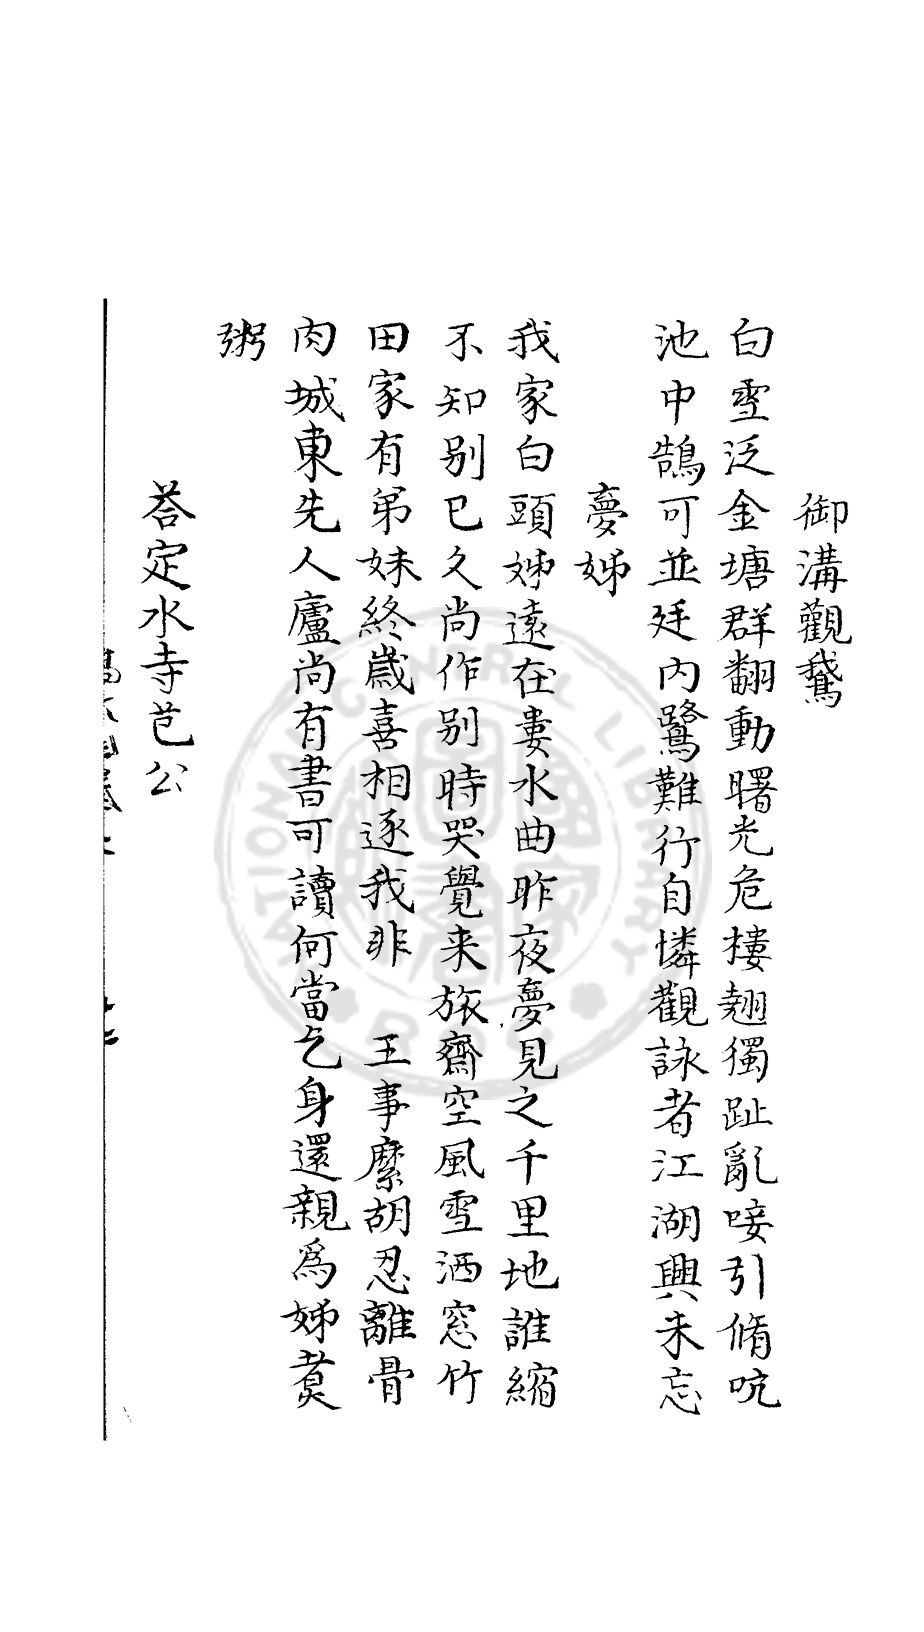 御溝觀鵞
白雪泛金塘群翻動曙光危樓翹獨趾亂唼引脩吭
池中鵠可並廷內鷺難行自憐觀詠者江湖興未忘
夢姊
我家白頭姊遠在婁水曲昨夜夢見之千里地誰縮
不知别已久尚作别時哭覺来旅齋空風雪洒窓竹
田家有弟妹終歲喜相逐我非 王事縻胡忍離骨
肉城東先人廬尚有書可讀何當乞身還親爲姊煑
粥
荅定水寺芑公
NATIONAL CENTRAL LIBRARY